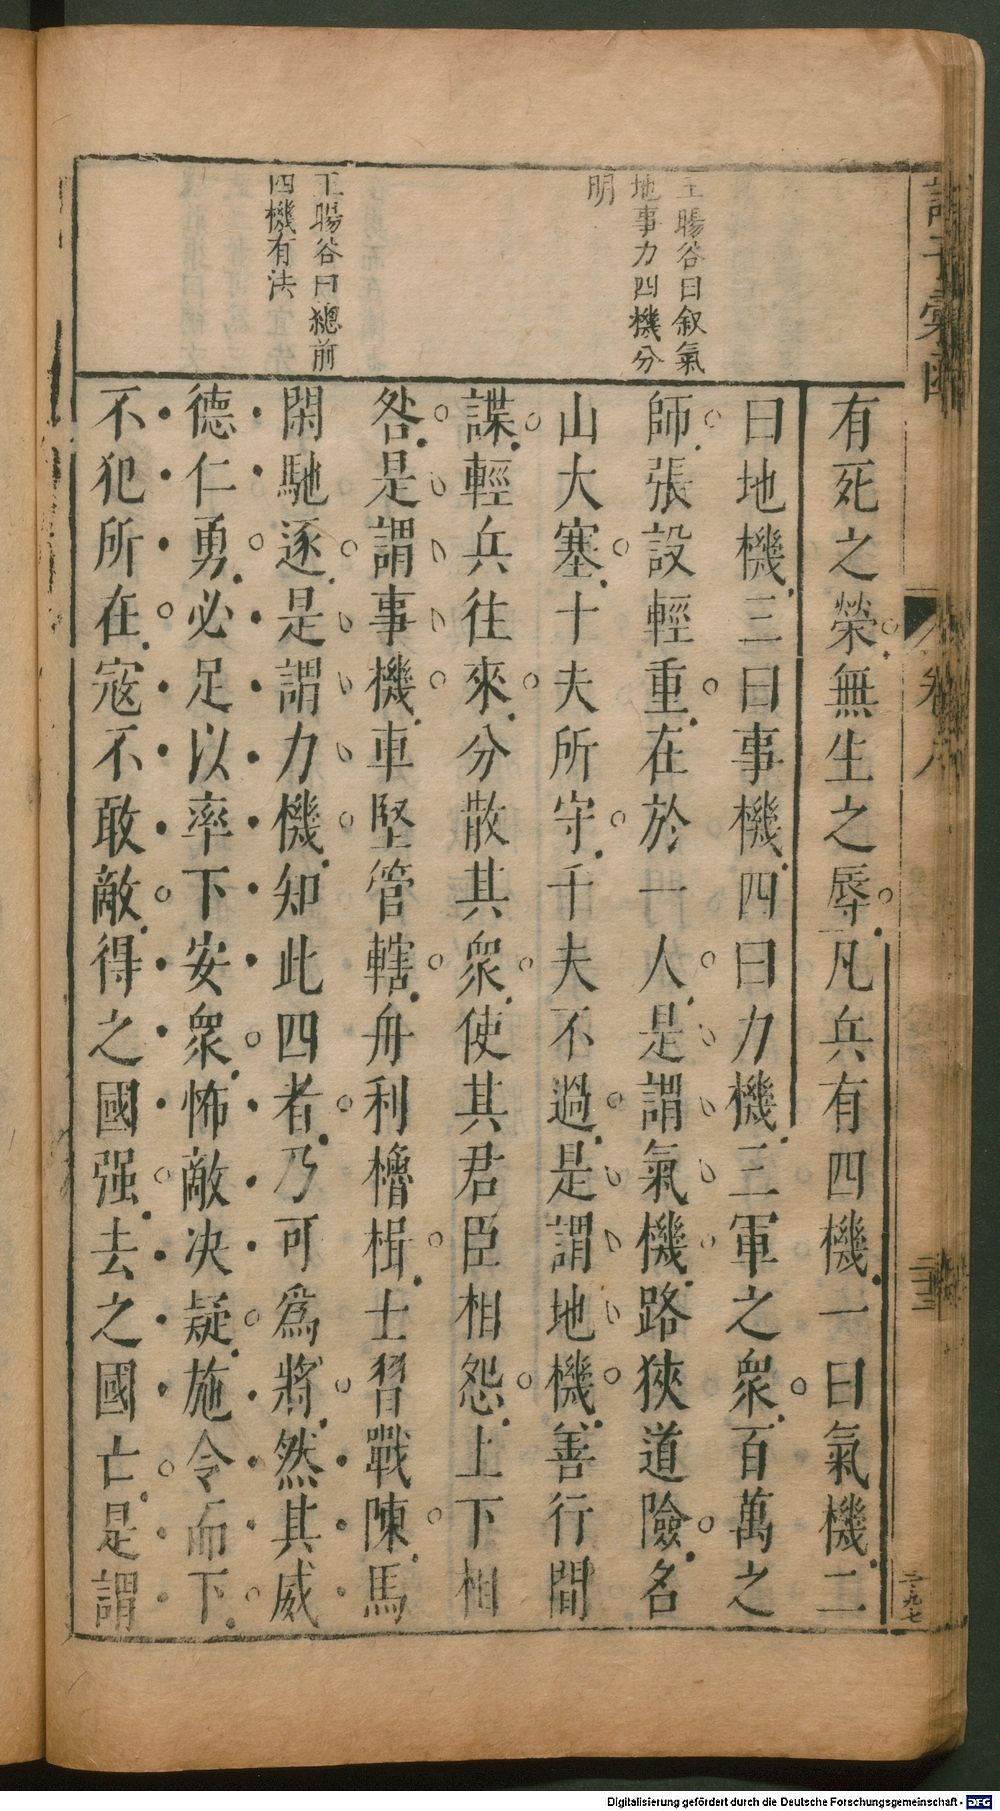 諸子彙函
卷八
二十三
二九七
王暘谷曰叙氣
地事力四機分
明
王暘谷曰總前
四機有法
有死之榮無生之辱凡兵有四機一曰氣機二
曰地機三曰事機四曰力機三軍之衆百萬之
師張設輕重在於一人是謂氣機路狹道險名
山大塞十夫所守千夫不過是謂地機善行間
諜輕兵往來分散其衆使其君臣相怨上下相
咎是謂事機車堅管轄舟利櫓楫士習戰陳馬
閑馳逐是謂力機知此四者乃可爲將然其威
德仁勇必足以率下安衆怖敵决疑施令而下
不犯所在寇不敢敵得之國强去之國亡是謂
Digitalisierung gefördert durch die Deutsche Forschungsgemeinschaft - DFG